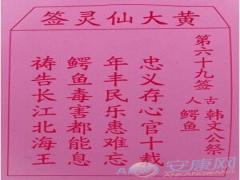 黄大仙灵签
第六十九签
古人
韩文公祭
鳄鱼
忠义存心官十载
年丰民乐惠难忘
鳄鱼毒害都能息
祷告长江北海王
安康网